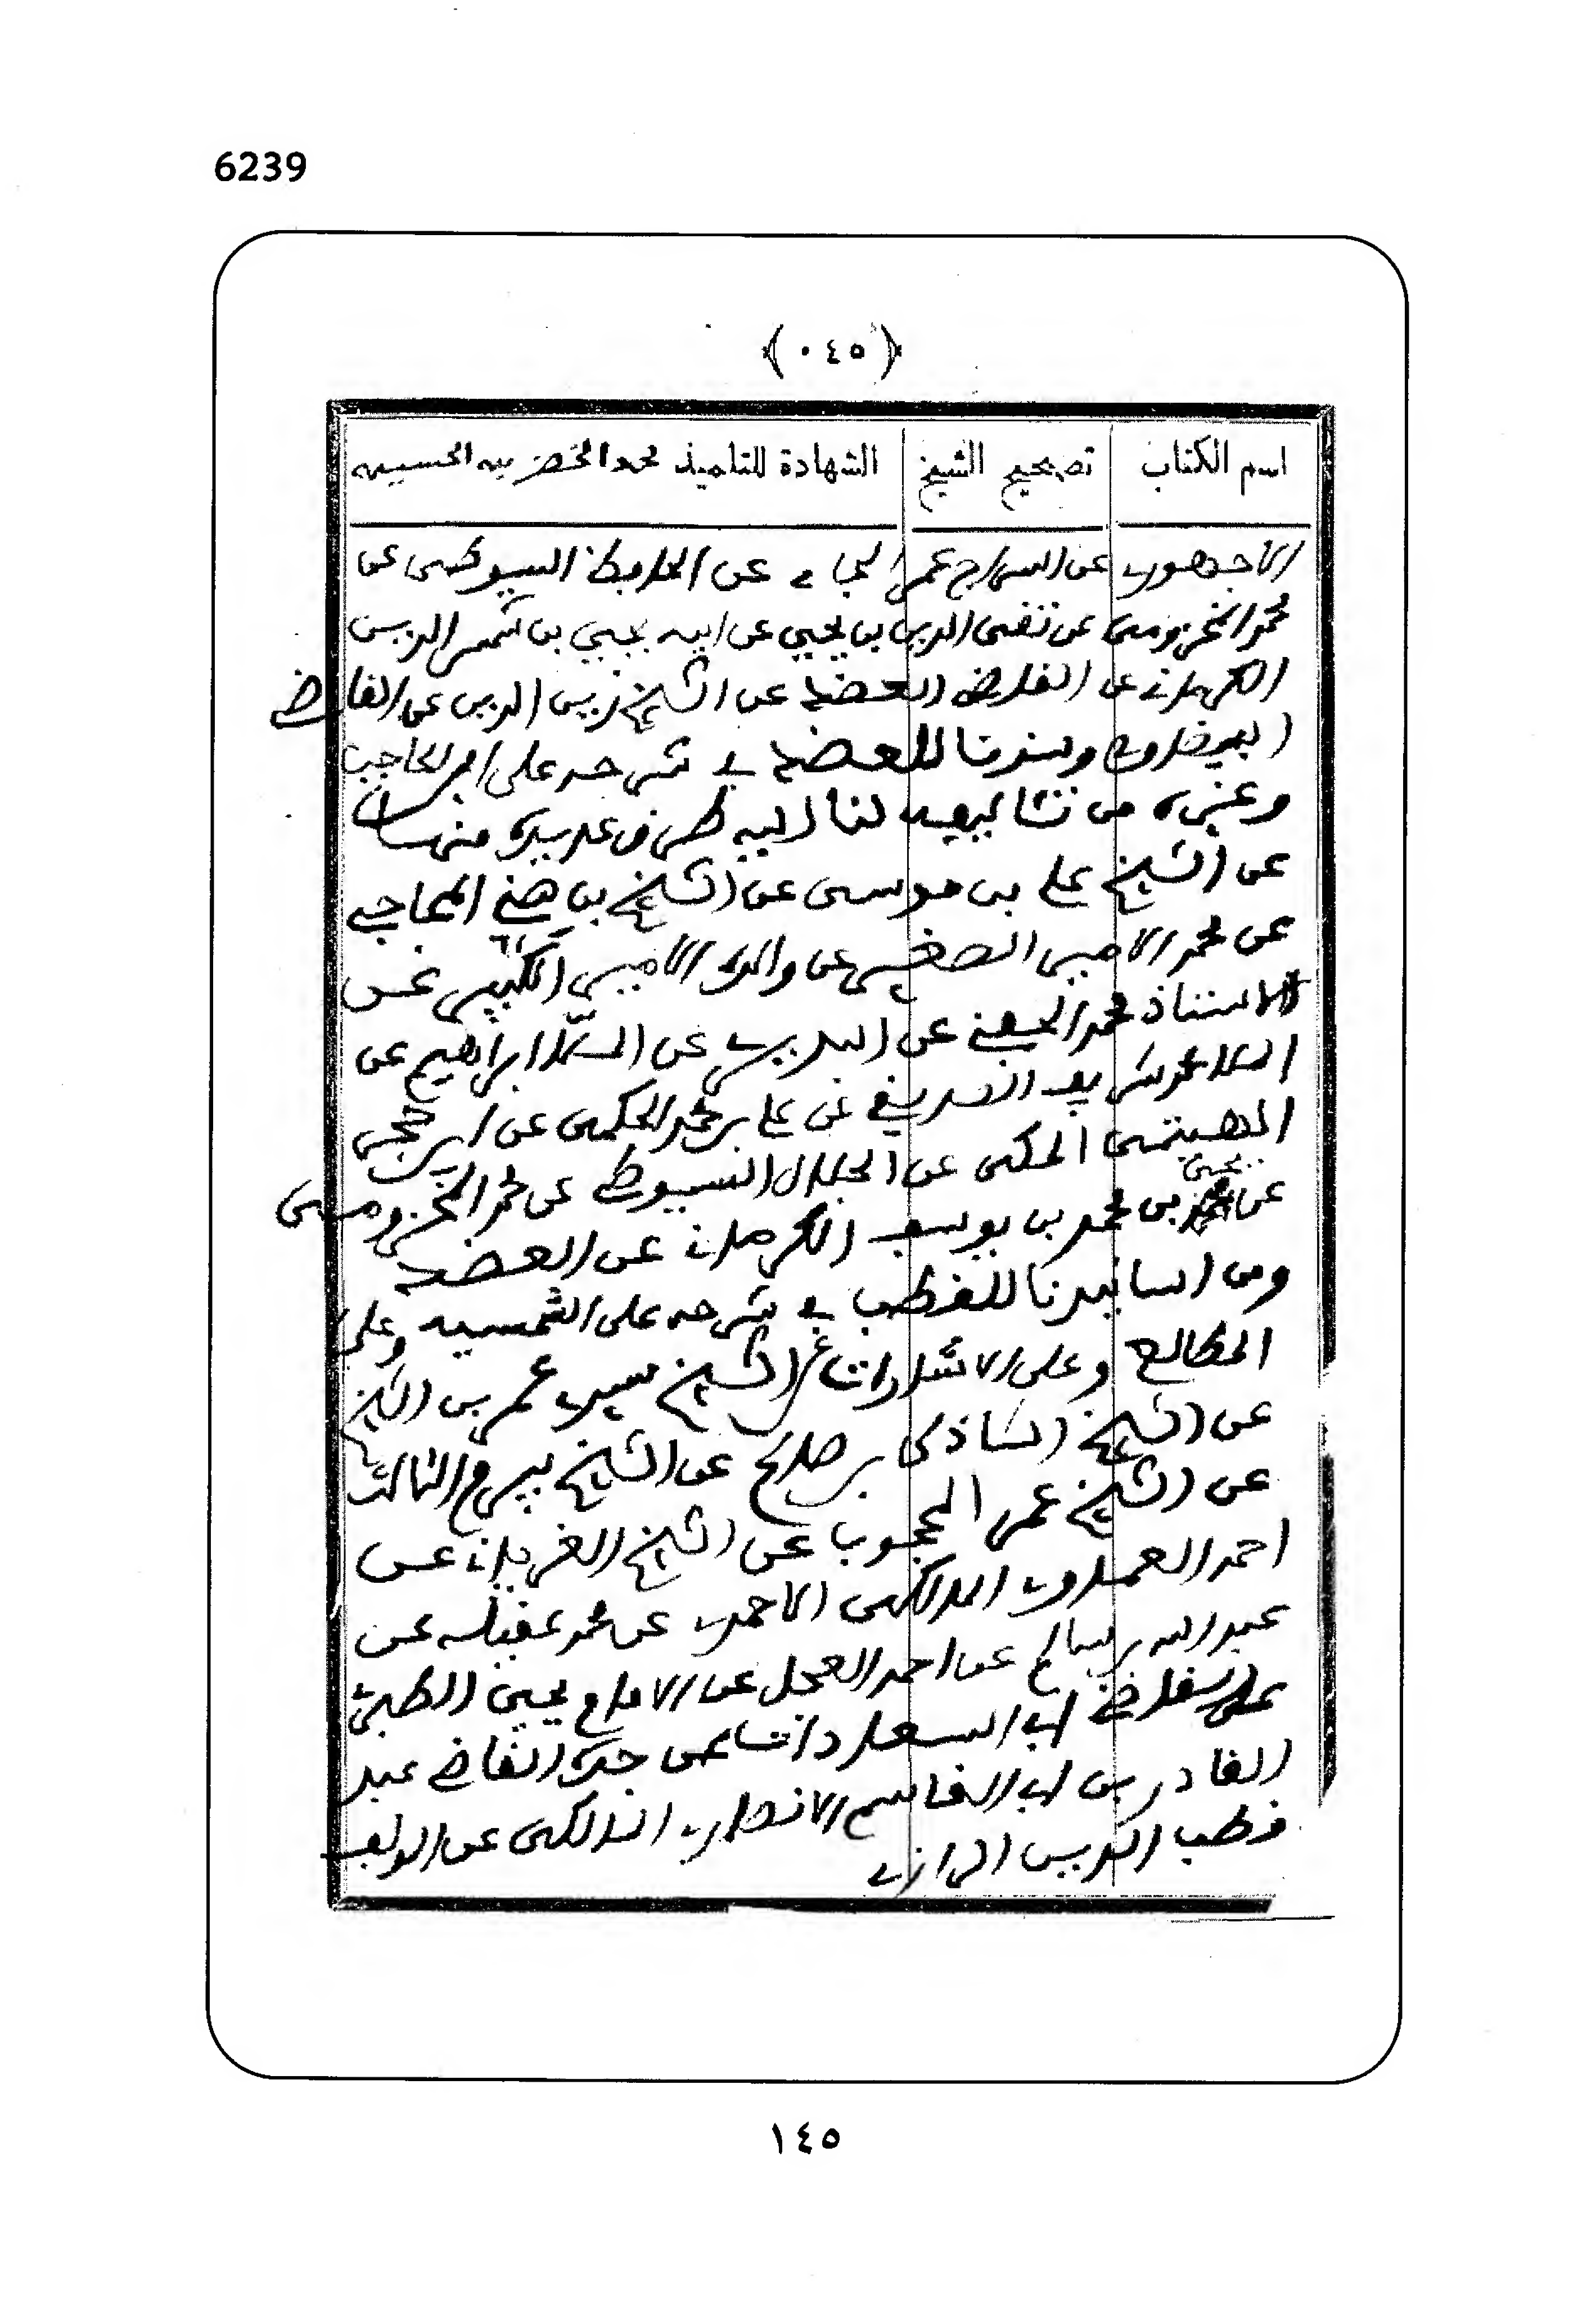 6239
﴿٠٤٥﴾
اسم الكتاب تصحيح الشيخ الشهادة للتلميذ محمد الخضر بن الحسين
الاجهوري عن السراج عمر الجاي عن الحافظ السيوطي عن
محمد المخزومي عن تقي الدين بن يحيى عن ابيه يحيى بن شمس الدين
الكرماني عن القاضي العضد عن الشيخ زين الدين عن القاضي
البيضاوي وسندنا للعضد في شرحه على ابن الحاجب
وغيره من تئاليفه لنا اليه طرق عديدة منها
عن الشيخ علي بن موسى عن الشيخ بن هني المجاجي
عن محمد الامير الصغير عن والده الامير الكبير عن
الاستاذ محمد الحفني عن البديري عن الملا ابراهيم عن
الملا محمد شريف عن علي بن محمد الحكمي عن ابن حجر
الهيتمي المكي عن الجلال السيوطي عن محمد المخزومي
عن يحيى بن محمد بن يوسف الكرماني عن العضد
ومن اسانيدنا للقطب في شرحه على الشمسيه وعلى
المطالع وعلى الاشارات عن الشيخ سيدي عمر بن الشيخ
عن الشيخ الشاذلي بن صالح عن الشيخ بيرم الثالث
عن الشيخ عمر المحجوب عن الشيخ الغرياني عن
احمد العماوي المالكي الاحمدي عن محمد عقيلة عن
عبد الله بن سالم عن احمد العجل عن الامام يحيى الطبري
على القاضي ابي السعادات عن جده القاضي عبد
القادر بن ابي القاسم الانصاري المالكي عن المولف
قطب الدين الرازي
١٤٥